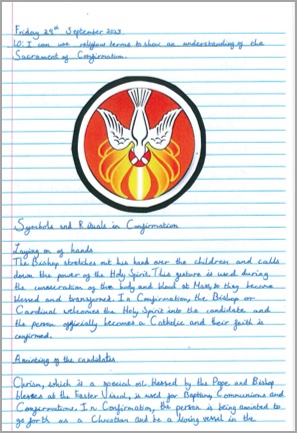 Friday 29th September 2023
LO: I can use religious terms to show an understanding of the
Sacrament of Confirmation.
Symbols and Rituals in Confirmation
Laying on of hands
The Bishop stretches out his hand over the children and calls
down the power of the Holy Spirit. This gesture is used during
the consecration of the body and blood at Mass, so they become
blessed and transformed. In a Confirmation, the Bishop or
Cardinal welcomes the Holy Spirit into the candidate and
the person officially becomes a Catholic and their faith is
confirmed.
Anointing of the candidates
Chrism, which is a special oil blessed by the Pope and Bishop
blesses at the Easter Vigil, is used for Baptisms, Communions and
Confirmations. In Confirmation, the person is being anointed to
go forth as a Christian and be a living vessel in the